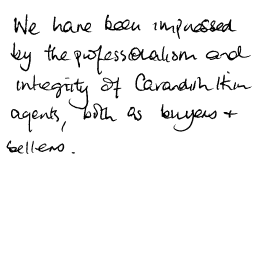 We have been impressed
by the professionalism and
integrity of Cavendish Ikin
agents, both as buyers +
sellers.